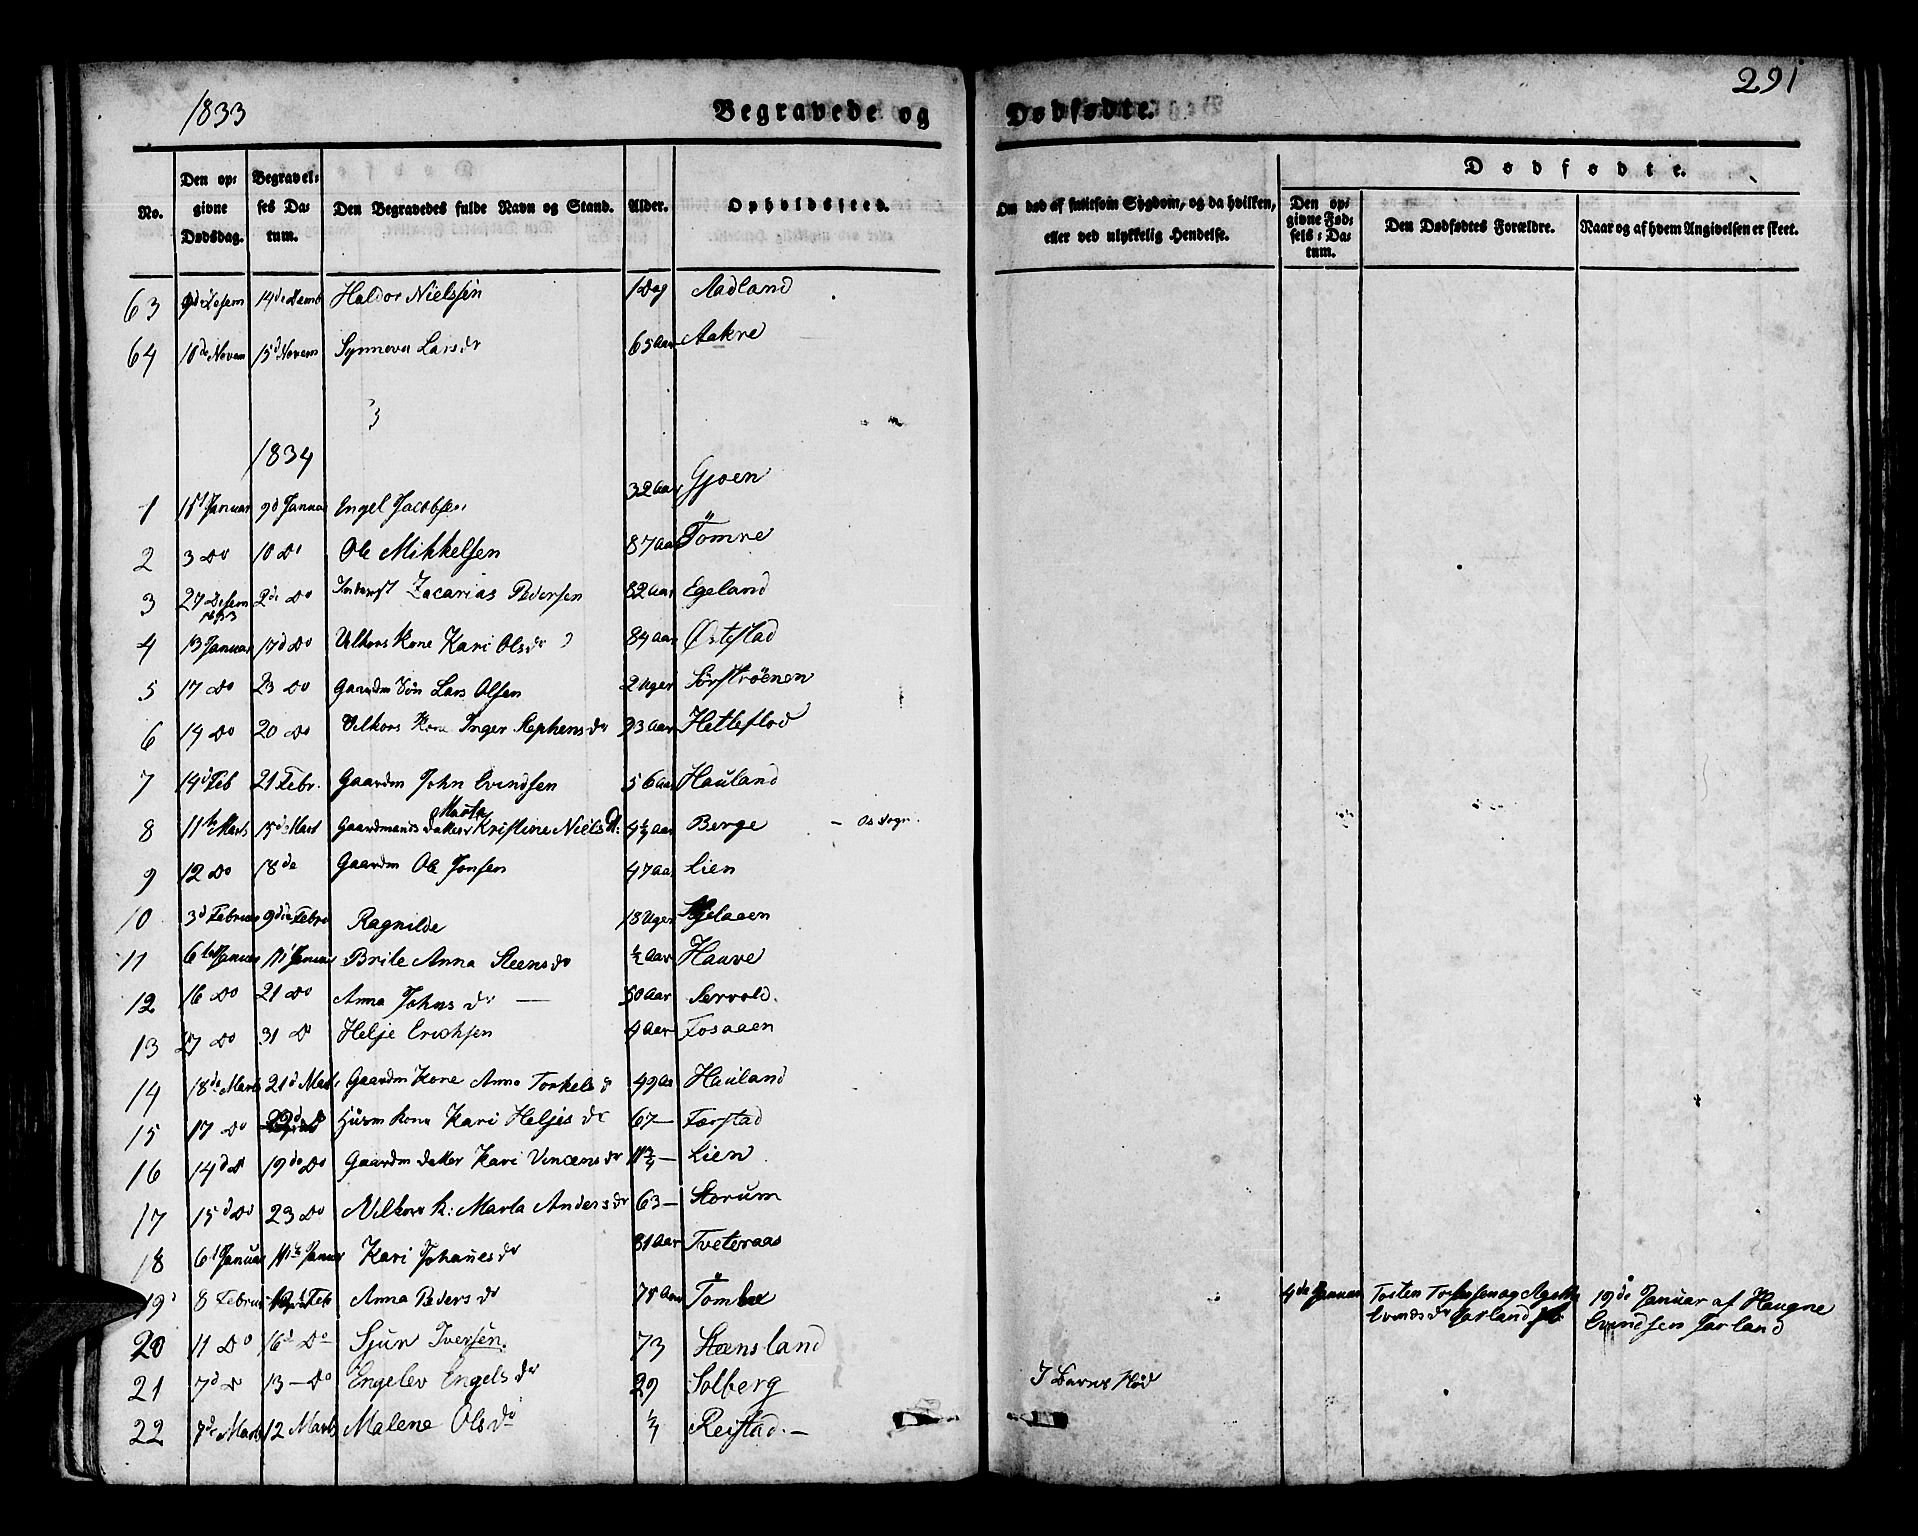 1833 Begravede og Dødfødte. 291
No. Den opgivne Dødsdag. Begravelses Datum. Den Begravedes fulde Navn og Stand. Alder. Opholdssted. Om død af smitsom Sygdom, og da hvilken, eller ved ulykkelig Hendelse. Dødfødte. Den opgivne Fødsels-Datum. Den Dødfødtes Forældre. Naar og af hvem Angivelsen er skeet.
63 Haldor Nielssen 1 Dag Aadland
64 10de Novem 15d Novem Synneva Larsdr 65 Aar Aakre
1834
1 Januar 9d Januar Engel Jacobsen 32 Aar Gjøen
2 3 Do 10 Do Ole Mikkelsen 87 Aar Tömre
3 27 Desem 1833 2de Do Inderst Zacarias Pedersen 82 Aar Egeland
4 13 Januar 17d Do Vilkors Kone Kari Olsdr 84 Aar Østestad
5 17 Do 23 Do Gaardm Søn Lars Olsen 2 Uger Sørströenen
6 14 Do 20 Do Vilkors Kone Inger Stephensdr 93 Aar Hetleflod
7 14d Feb 21 Febr. Gaardm John Evindsen 56 Aar Hauland
8 11te Marts 15d Mart Gaardmands Datter Marta Kristine Nielsdr 4½ Aar Berge – Os Sogn.
9 12 Do 18de Gaardm Ole Jonsen 47 Aar Lien
10 3d Februar 9de Febr Ragnilde 18 Uger
11 6te Januar 11 Januar Brite Anna Steensdr ½ Aar Hauve
12 16 Do 21 Do Anna Johnsdr — 50 Aar Servold.
13 27 Do 31 Do Helje Erichsen 4 Aar Fosaaen
14 18de Marts 21d Mart Gaardm Kone Anna Torkelsdr 49 Aar Hauland
15 17 Do Huusm Kone Kari Heljesdr 67 — Færstad
16 14d Do 19de Do Gaardm Datter Kari Vincensdr — Lien
17 15d Do 23 Do Vilkors K: Marta Andersdr 63 — Storum
18 6t Januar 11te Januar Kari Johannesdr 81 Aar Tveteraas
19 8 Februar Feb Anna Pedersdr 75 Aar 4de Januar Tosten og
Evindsdr Jarland 19de Januar af Haugne
Evindsen Jarland
20 11 Do 16d Do Sjur Iversen. 73 Steensland
21 7d Do 13 – Do Engelev Engelsdr 29 Solberg I Barns Nød
22 7de Marts 12 Marts Malene Olsdr Reistad. –